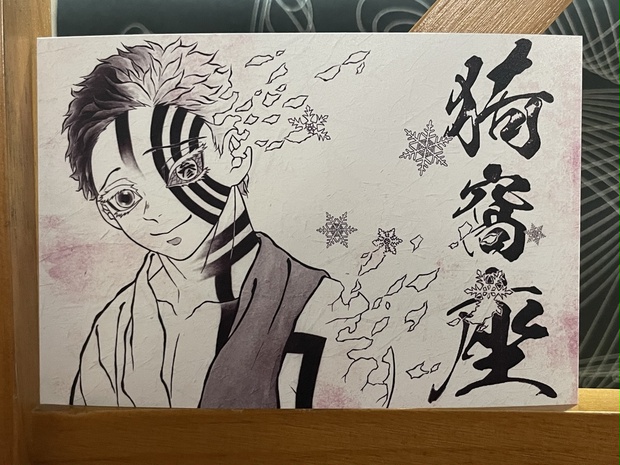 猗窩座